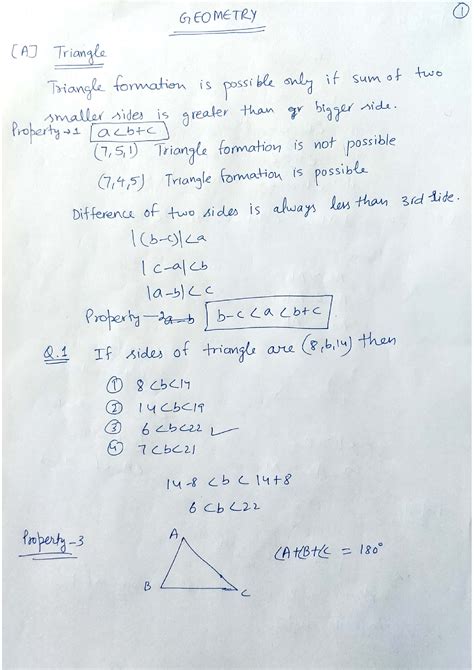 GEOMETRY
1
[A] Triangle
Triangle formation is possible only if sum of two
smaller sides is greater than bigger side.
Property→1 a<b+c
(7,5,1) Triangle formation is not possible
(7,4,5) Triangle formation is possible
Difference of two sides is always less than 3rd side.
|(b-c)|<a
|c-a|<b
|a-b|<c
Property-2 b-c<a<b+c
Q.1 If sides of triangle are (8,b,14) then
① 8<b<17
② 14<b<19
③ 6<b<22 ✓
④ 7<b<21
14-8 <b< 14+8
6<b<22
Property-3
A
B
C
∠A+∠B+∠C = 180°